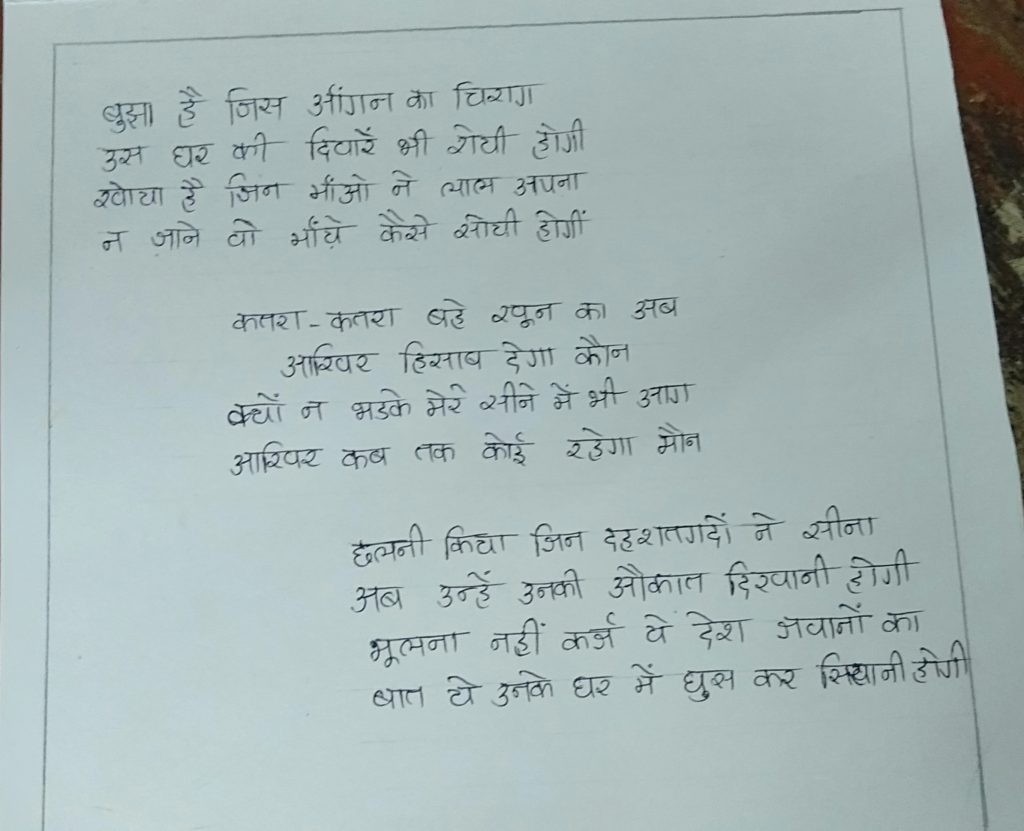 बुझा है जिस आंगन का चिराग
उस घर की दिवारें भी रोयी होगी
खोया है जिन माँओ ने लाल अपना
न जाने वो माँये कैसे सोयी होगीं
कतरा - कतरा बहे खून का अब
आखिर हिसाब देगा कौन
क्यों न भडके मेरे सीने में भी आग
आखिर कब तक कोई रहेगा मौन
छलनी किया जिन दहशतगर्दो ने सीना
अब उन्हें उनकी औकात दिखानी होगी
भूलना नहीं कर्ज ये देश जवानों का
बात ये उनके घर में घुस कर सिखानी होगी